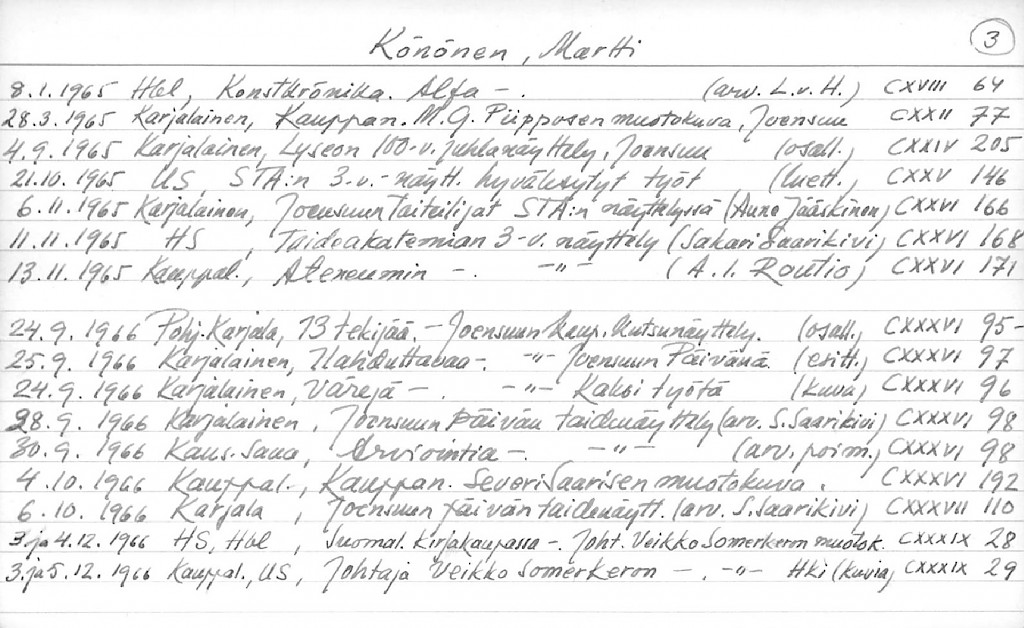 Könönen, Martti 3
8.1.1965 Hbl, Konstkrönika. Alfa -. (arv. L.v.H.) CXVIII 64
28.3.1965 Karjalainen, Kauppan. M.G. Piipposen muotokuva, Joensuu CXXII 77
4.9.1965 Karjalainen, Lyseon 100-v. juhlanäyttely, Joensuu (osall.) CXXIV 205
21.10.1965 US, STA:n 3-v.-näytt. hyväksytyt työt (luett.) CXXV 146
6.11.1965 Karjalainen, Joensuun taiteilijat STA:n näyttelyssä (Aune Jääskinen) CXXVI 166
11.11.1965 HS, Taideakatemian 3-v. näyttely (Sakari Saarikivi) CXXVI 168
13.11.1965 Kauppal., Ateneumin -. -"- (A.I. Routio) CXXVI 171
24.9.1966 Pohj.Karjala, 13 tekijää. - Joensuun kaup. kutsunäyttely. (osall.) CXXXVI 95-
25.9.1966 Karjalainen, Ilahduttavaa -. -"- Joensuun Päivänä. (eritt.) CXXXVI 97
24.9.1966 Karjalainen, Värejä -. -"- Kaksi työtä (kuva) CXXXVI 96
28.9.1966 Karjalainen, Joensuun Päivän taidenäyttely (arv. S.Saarikivi) CXXXVI 98
30.9.1966 Kans.Sana, Arviointia -. -"- (arv. poim.) CXXXVI 98
4.10.1966 Kauppal., Kauppan. Severi Saarisen muotokuva. CXXXVI 192
6.10.1966 Karjala, Joensuun päivän taidenäytt. (arv. S.Saarikivi) CXXXVII 110
3.ja 4.12.1966 HS, Hbl, Suomal. Kirjakaupassa -. Joht. Veikko Somerkeron muotok. CXXXIX 28
3.ja 5.12.1966 Kauppal., US, Johtaja Veikko Somerkeron -. -"- Hki (kuvia) CXXXIX 29